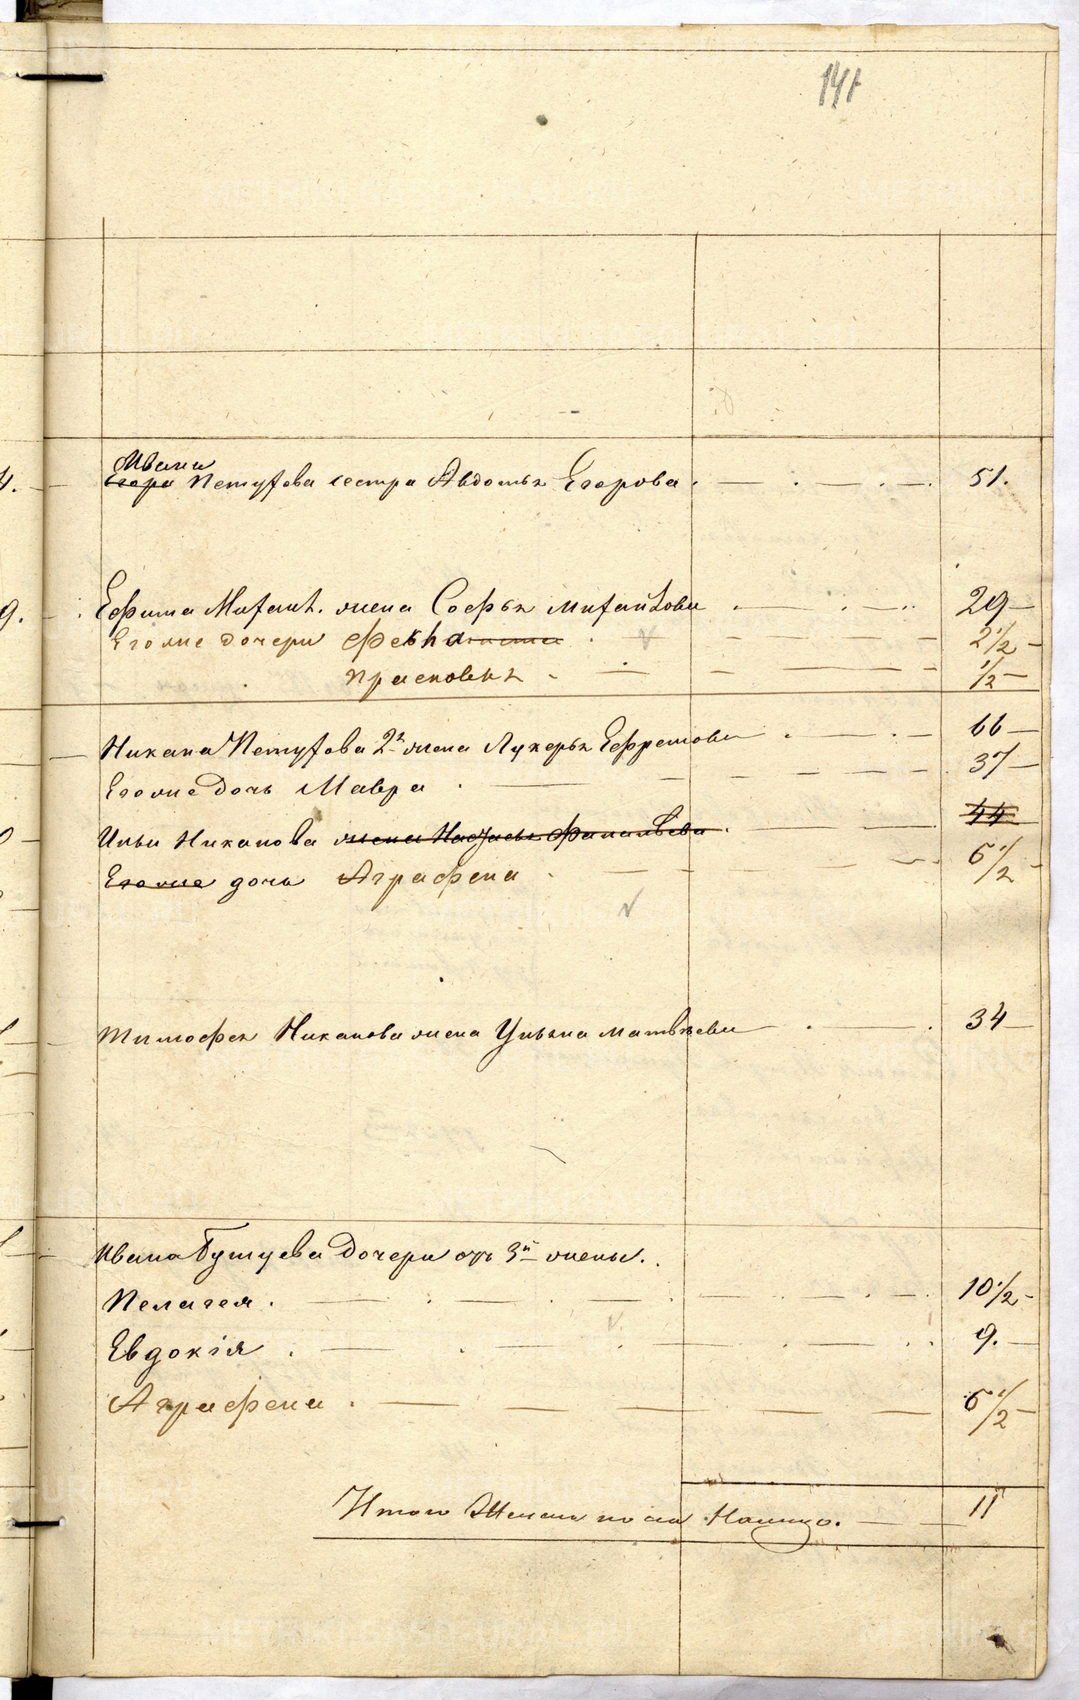 141
Ивана
4. Егора Петухова сестра Авдотья Егорова 51.
9. Ефима Михаил. жена Софья Михайлова 29
Его же дочери Фекла 2 1/2
Прасковья 1/2
Никана Петухова 2я жена Лукерья Ефремова 66
Его же дочь Мавра 37
Ильи Никанова жена Настасья 44
Его же дочь Аграфена 5 1/2
Тимофея Никанова жена Ульяна Матвѣева 34
Ивана дочери отъ 3й жены.
Пелагея. 10 1/2
Евдокія. 9.
Аграфена. 5 1/2
Итого Женска пола Налицо. 11